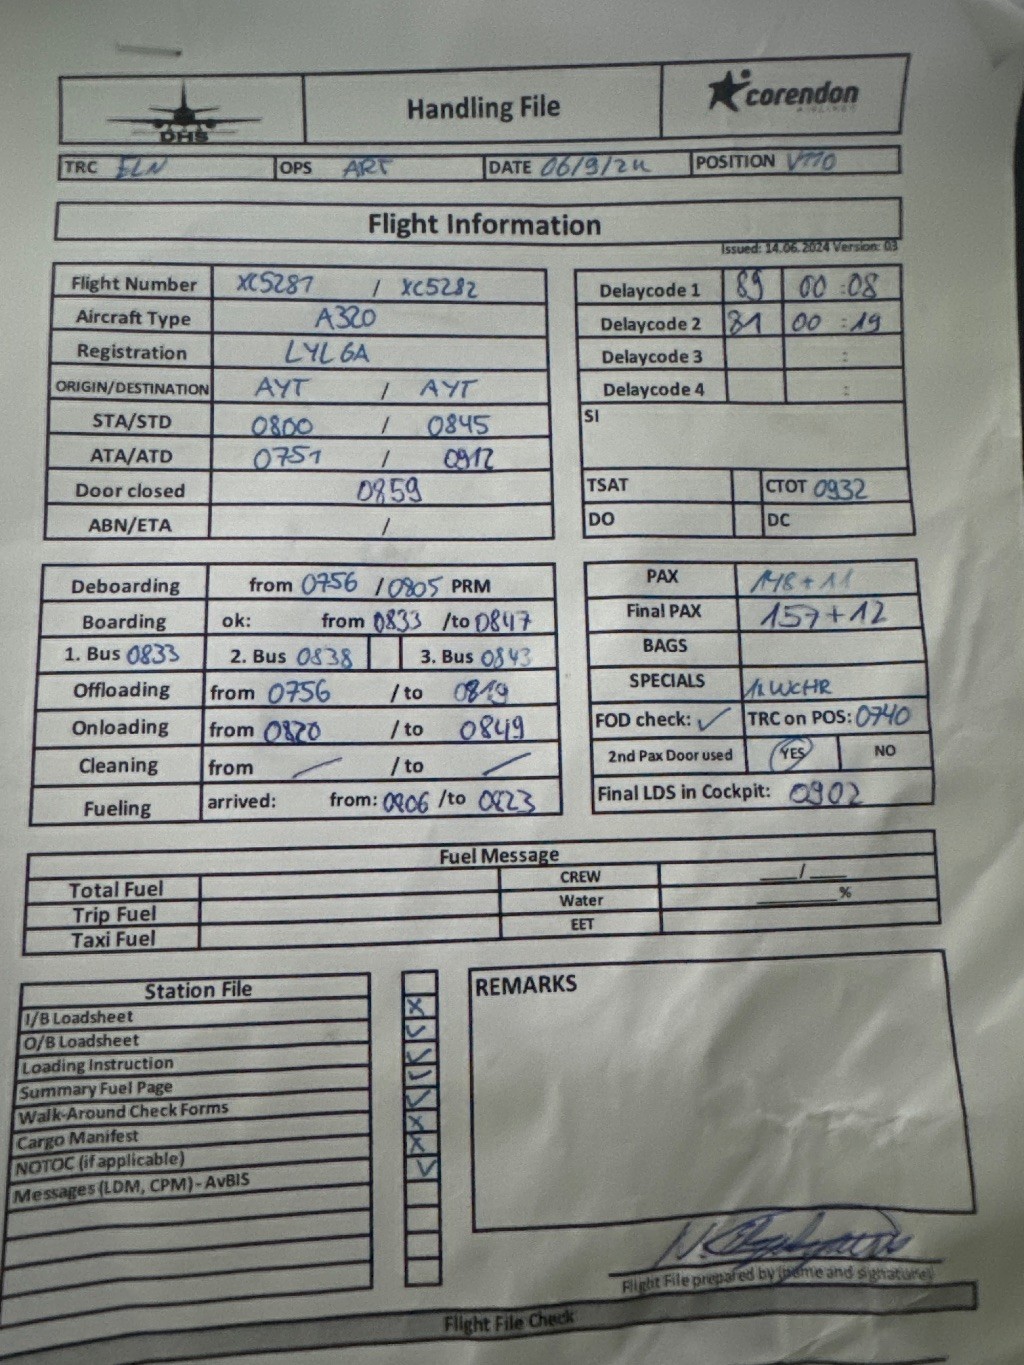 DHS
Handling File
corendon
AIRLINES
TRC ELN OPS ART DATE 06/9/24 POSITION V110
Flight Information
Issued: 14.06.2024 Version: 03
Flight Number XC5281 / XC5282
Aircraft Type A320
Registration LYLGA
ORIGIN/DESTINATION AYT / AYT
STA/STD 0800 / 0845
ATA/ATD 0751 / 0912
Door closed 0859
ABN/ETA /
Delaycode 1 89 00:08
Delaycode 2 81 00:19
Delaycode 3 :
Delaycode 4 :
SI
TSAT CTOT 0932
DO DC
Deboarding from 0756 /0805 PRM
Boarding ok: from 0833 /to 0847
1. Bus 0833 2. Bus 0838 3. Bus 0843
Offloading from 0756 /to 0819
Onloading from 0820 /to 0849
Cleaning from — /to —
Fueling arrived: from: 0806 /to 0823
PAX 148+11
Final PAX 157+12
BAGS
SPECIALS 1x WCHR
FOD check: ✓ TRC on POS: 0740
2nd Pax Door used YES NO
Final LDS in Cockpit: 0902
Fuel Message
Total Fuel CREW ___/___
Trip Fuel Water ______%
Taxi Fuel EET
Station File
I/B Loadsheet X
O/B Loadsheet ✓
Loading Instruction ✓
Summary Fuel Page ✓
Walk-Around Check Forms ✓
Cargo Manifest X
NOTOC (if applicable) X
Messages (LDM, CPM) - AvBIS ✓
REMARKS
Flight File prepared by (name and signature)
Flight File Check